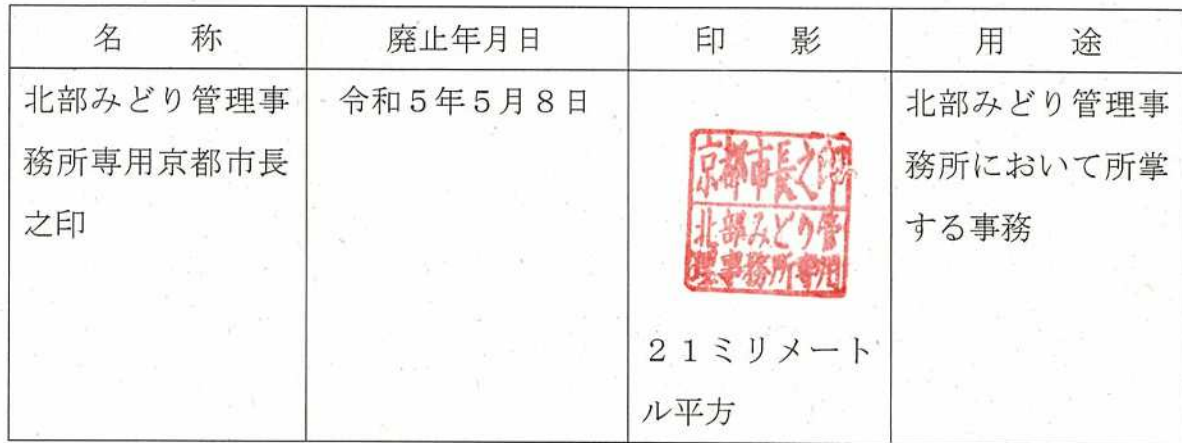 名　称
廃止年月日
印　影
用　途
北部みどり管理事
務所専用京都市長
之印
令和５年５月８日
京都市長之印
北部みどり管
理事務所専用
２１ミリメート
ル平方
北部みどり管理事
務所において所掌
する事務